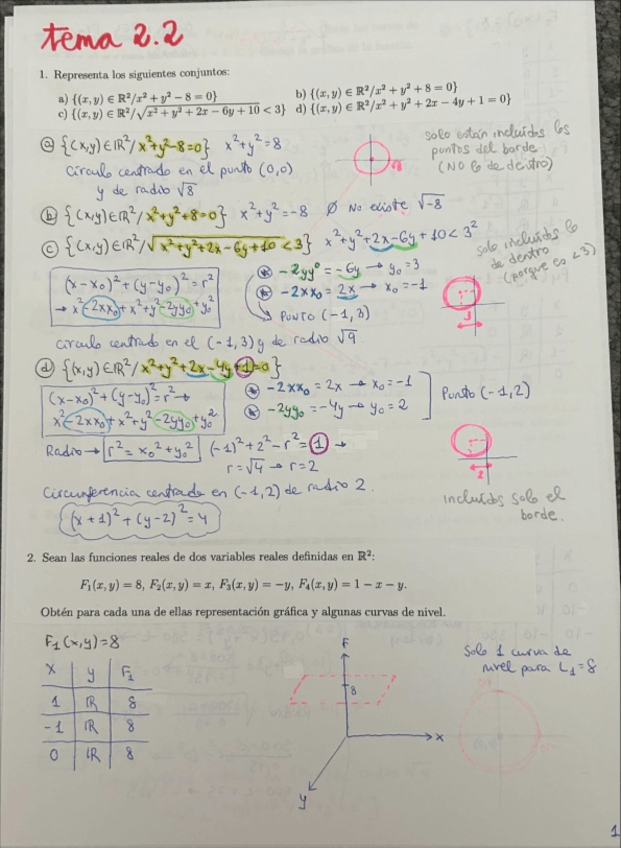 tema 2.2
1. Representa los siguientes conjuntos:
a) {(x, y) ∈ ℝ²/x² + y² − 8 = 0} b) {(x, y) ∈ ℝ²/x² + y² + 8 = 0}
c) {(x, y) ∈ ℝ²/√(x² + y² + 2x − 6y + 10) < 3} d) {(x, y) ∈ ℝ²/x² + y² + 2x − 4y + 1 = 0}
ⓐ {(x,y) ∈ ℝ²/ x²+y²-8=0} x²+y²=8
Círculo centrado en el punto (0,0)
y de radio √8
√8
solo están incluidos los
puntos del borde
(NO lo de dentro)
ⓑ {(x,y) ∈ ℝ²/ x²+y²+8=0} x²+y²=-8 ∅ No existe √-8
ⓒ {(x,y) ∈ ℝ²/ √(x²+y²+2x-6y+10) < 3} x²+y²+2x-6y+10 < 3²
solo incluidos lo
de dentro
(porque es <3)
(x-x₀)²+(y-y₀)²=r²
→ x²-2xx₀+x₀²+y²-2yy₀+y₀²
-2yy₀ = -6y → y₀=3
-2xx₀ = 2x → x₀=-1
Punto (-1,3)
3
círculo centrado en el (-1,3) y de radio √9
ⓓ {(x,y) ∈ ℝ²/ x²+y²+2x-4y+1=0}
(x-x₀)²+(y-y₀)²=r² →
x²-2xx₀+x₀²+y²-2yy₀+y₀²
-2xx₀ = 2x → x₀=-1
-2yy₀ = -4y → y₀=2
Punto (-1,2)
Radio → r²=x₀²+y₀² (-1)²+2²-r²=1 →
r=√4 → r=2
2
Circunferencia centrada en (-1,2) de radio 2.
(x+1)²+(y-2)²=4
incluidos solo el
borde.
2. Sean las funciones reales de dos variables reales definidas en ℝ²:
F₁(x, y) = 8, F₂(x, y) = x, F₃(x, y) = −y, F₄(x, y) = 1 − x − y.
Obtén para cada una de ellas representación gráfica y algunas curvas de nivel.
F₁(x,y)=8
x y F₁
1 ℝ 8
-1 ℝ 8
0 ℝ 8
F
8
x
y
Solo 1 curva de
nivel para L₁=8
1